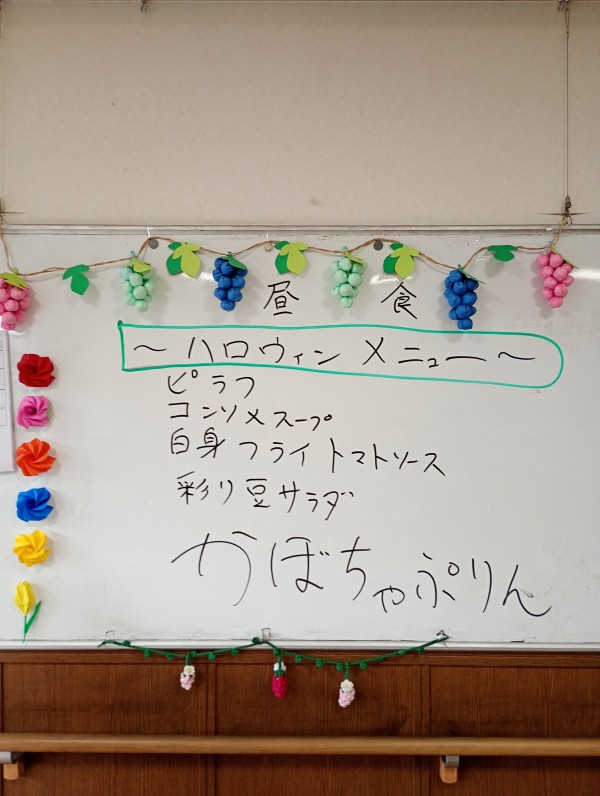 昼食
～ハロウィンメニュー～
ピラフ
コンソメスープ
白身フライトマトソース
彩り豆サラダ
かぼちゃぷりん